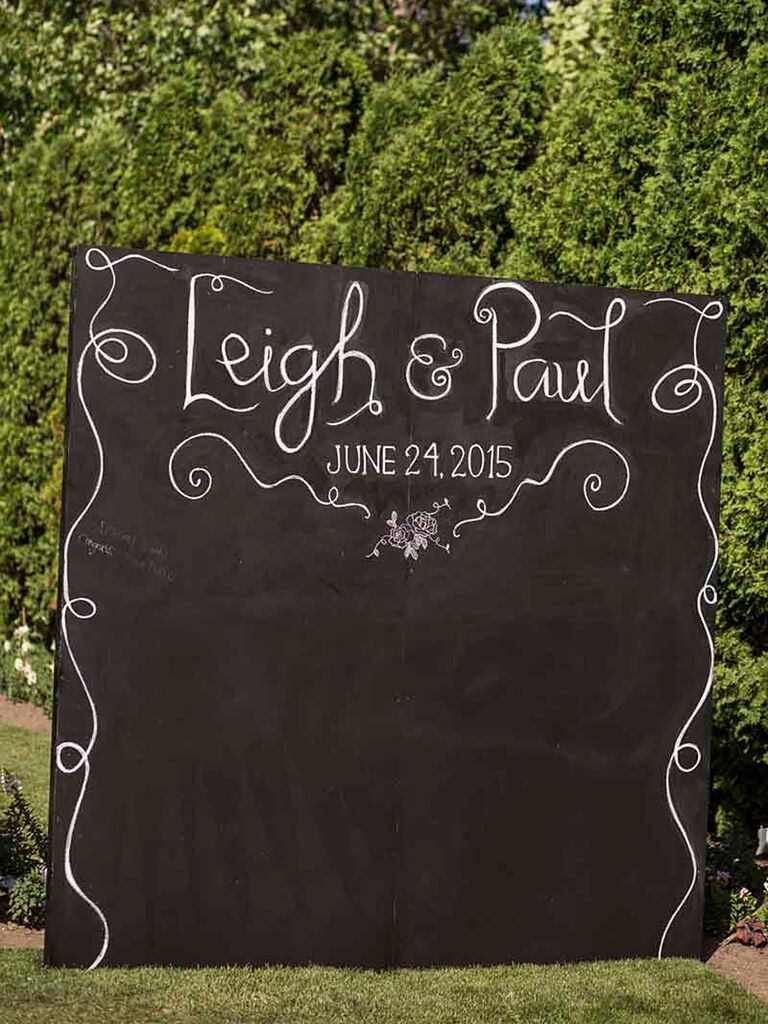 Leigh & Paul
JUNE 24, 2015
congrats